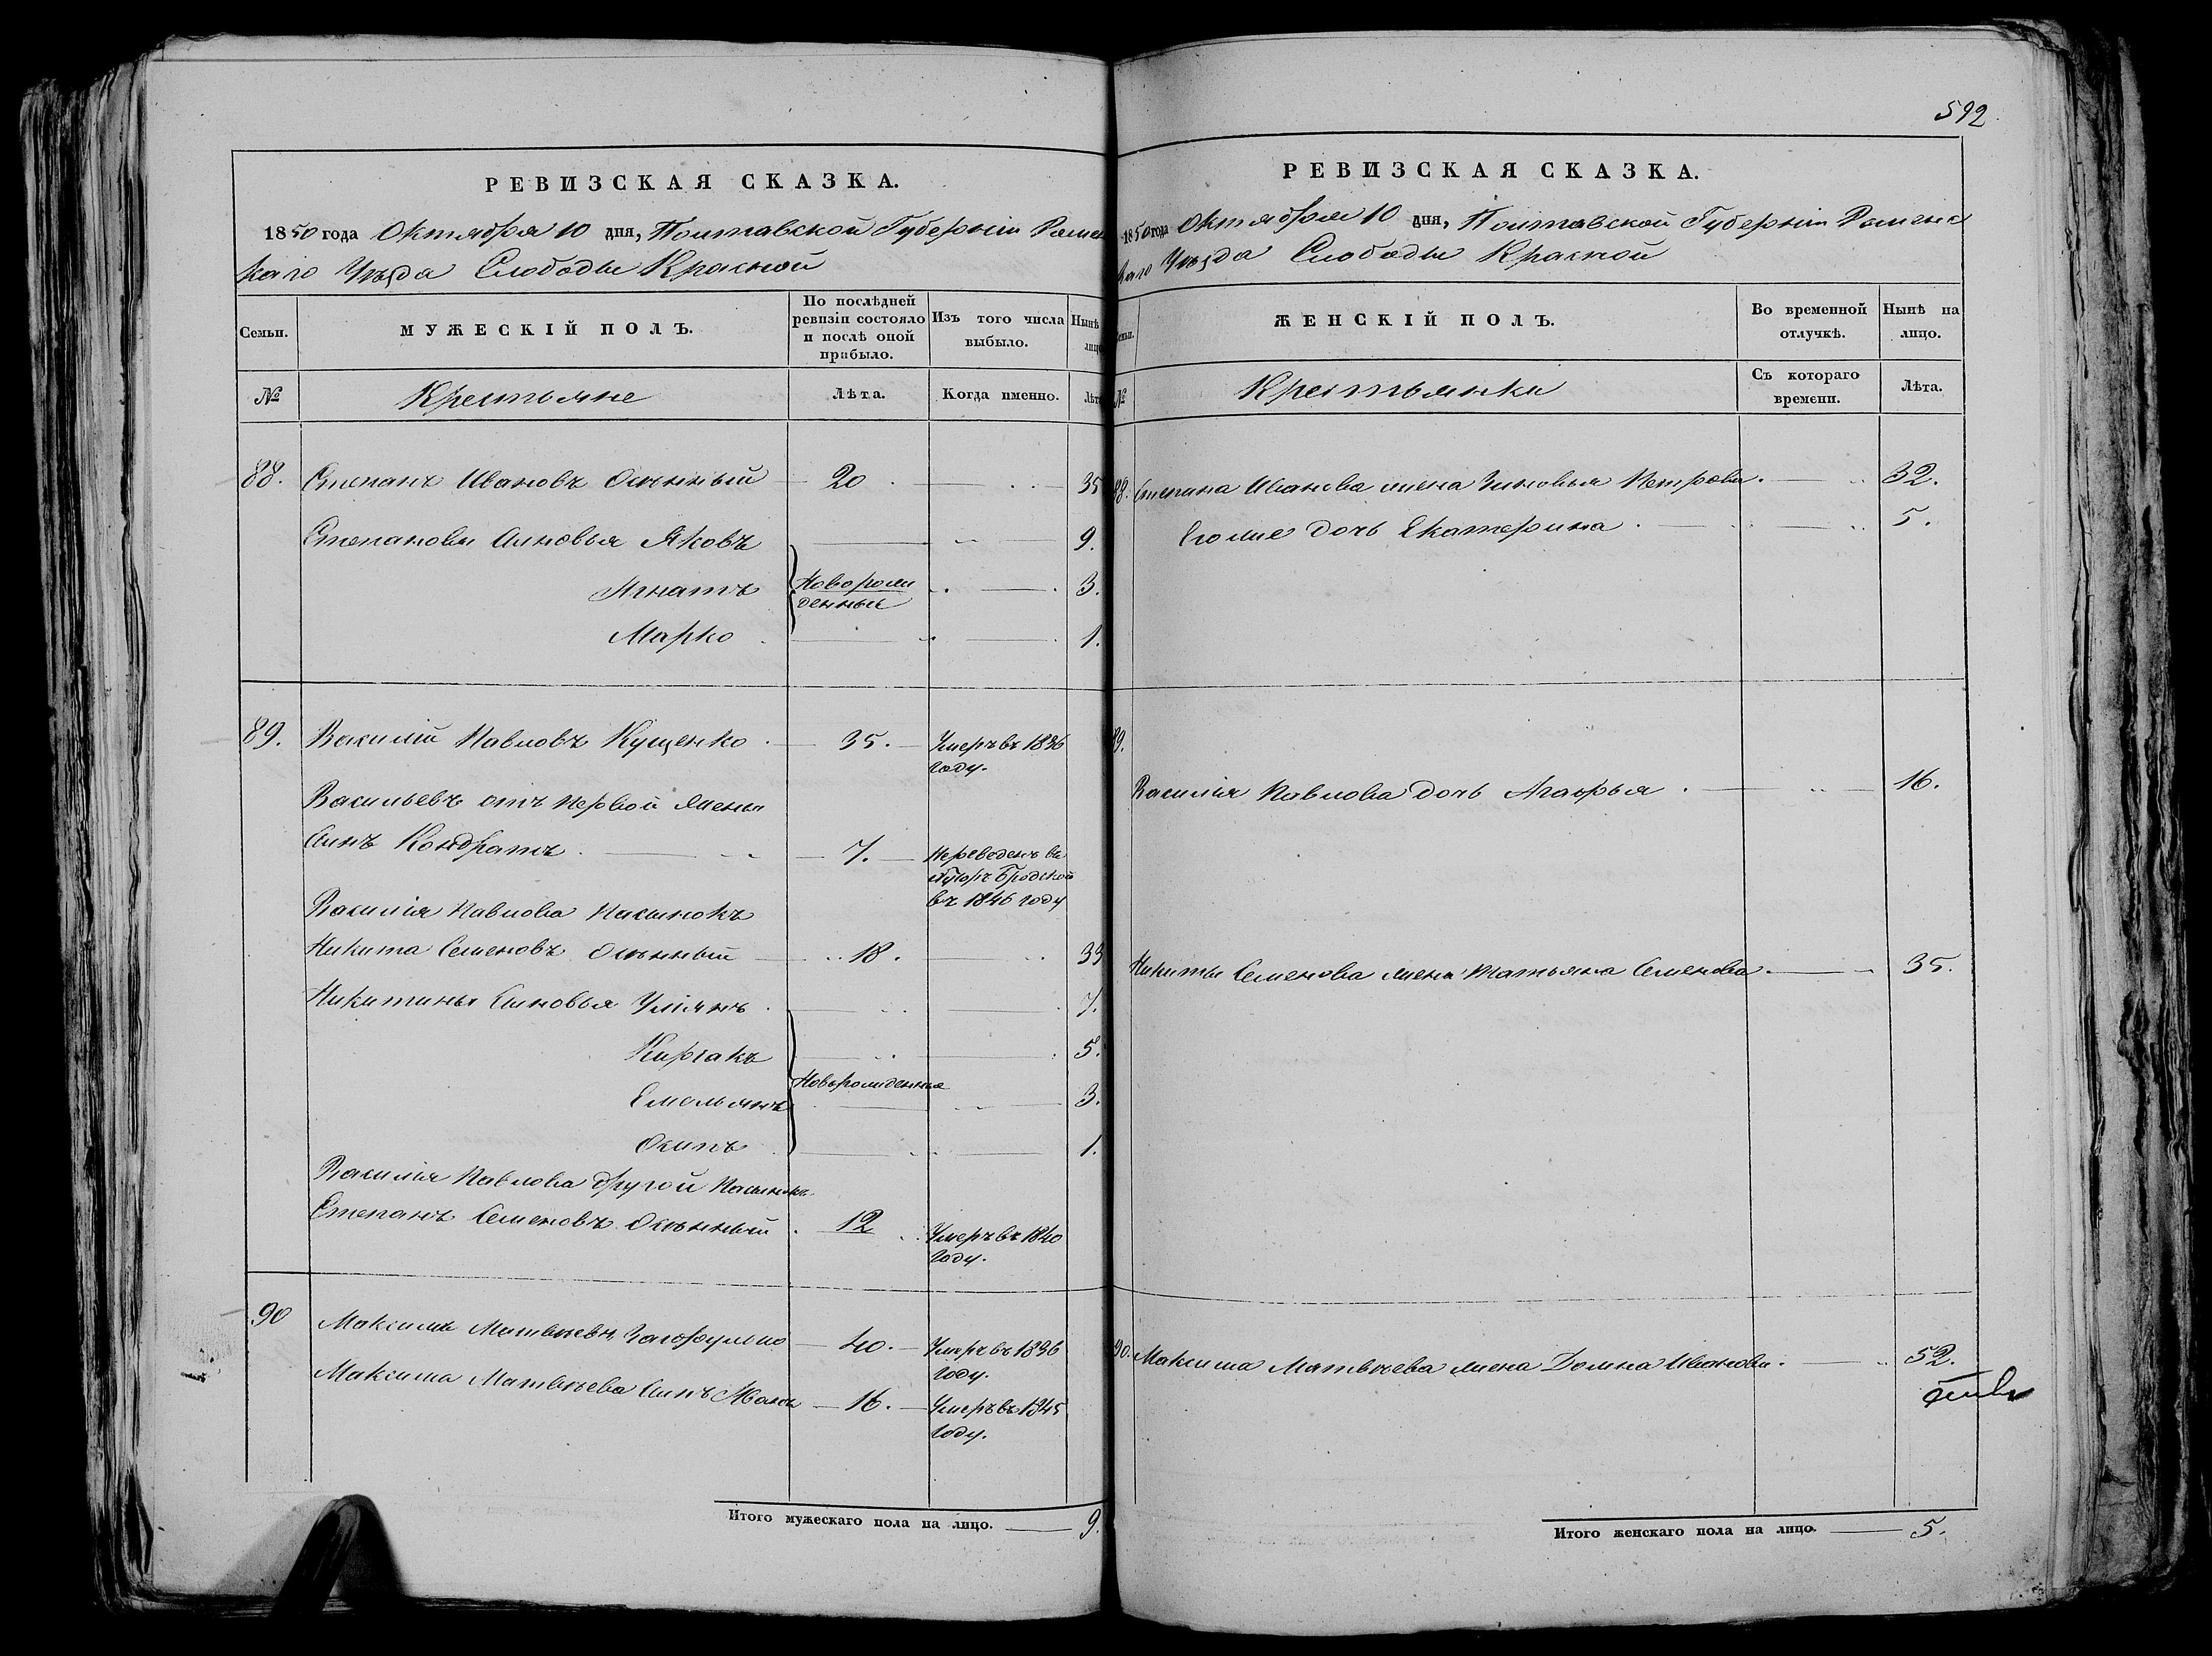 РЕВИЗСКАЯ СКАЗКА.
1850 года Октября 10 дня, Полтавской Губерніи Ромен
скаго Уѣзда Слободы Красной
Семьи.
МУЖЕСКІЙ ПОЛЪ.
По послѣдней
ревизіи состояло
и послѣ оной
прибыло.
Изъ того числа
выбыло.
Нынѣ
лицо
№
Крестьяне
Лѣта.
Когда именно.
Лѣта
88. Степанъ Ивановъ 20 35
Степановы Сыновья Яковъ 9.
Игнатъ Новорож 3.
денные
Марко 1.
89. Василій Павловъ Кущенко 35. Умеръ въ 1836
году.
Васильевъ отъ первой жены
Сынъ Кондратъ 7. Переведенъ въ
Хуторъ Бродской
въ 1846 году
Василія Павлова Пасынокъ
Никита Семеновъ 18. 33
Никитины Сыновья Уліянъ 7.
Кирьякъ 5.
Новорожденные
Емельянъ 3.
Осипъ 1.
Василія Павлова другой Пасынокъ
Степанъ Семеновъ 12 Умеръ въ 1840
году.
90 Максимъ Матвѣевъ Загорулько 40. Умеръ въ 1836
году.
Максима Матвѣева Сынъ 16. Умеръ въ 1845
году.
Итого мужескаго пола на лицо. 9.
592
РЕВИЗСКАЯ СКАЗКА.
1850 года Октября 10 дня, Полтавской Губерніи Роменс
каго Уѣзда Слободы Красной
Семьи.
ЖЕНСКІЙ ПОЛЪ.
Во временной
отлучкѣ.
Нынѣ на
лицо.
№
Крестьянки
Съ котораго
времени.
Лѣта.
88. Степана Иванова жена Зиновья Петрова. 32.
Его же дочь Екатерина. 5.
89.
Василія Павлова дочь Агафья. 16.
Никиты Семенова жена Татьяна Семенова. 35.
90. Максима Матвѣева жена Домна Иванова. 52.
Итого женскаго пола на лицо. 5.